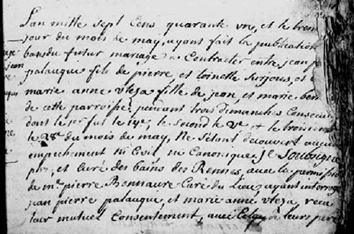 L'an mille sept Cens quarante un, et le
jour du mois de may, ayant fait la publication
bans du futur mariage a Contracter entre jean p
palauque fils de pierre, et toinette Surjous, et
marie anne fille de jean, et marie
de cette parroisse, pendant trois dimanches Consecu
dont le pr fut le le second le et le troisieme
le du mois de may, Ne s'étant découvert aucun
empechement ni Civil ni Canonique, je Soussigné
ptre et Curé des bains des Rennes, avec la permission
de mr pierre Bonnaure Curé du Lieu, ayant interrogé
jean pierre palauque, et marie anne reçu
leur mutuel Consentement, avec leurs